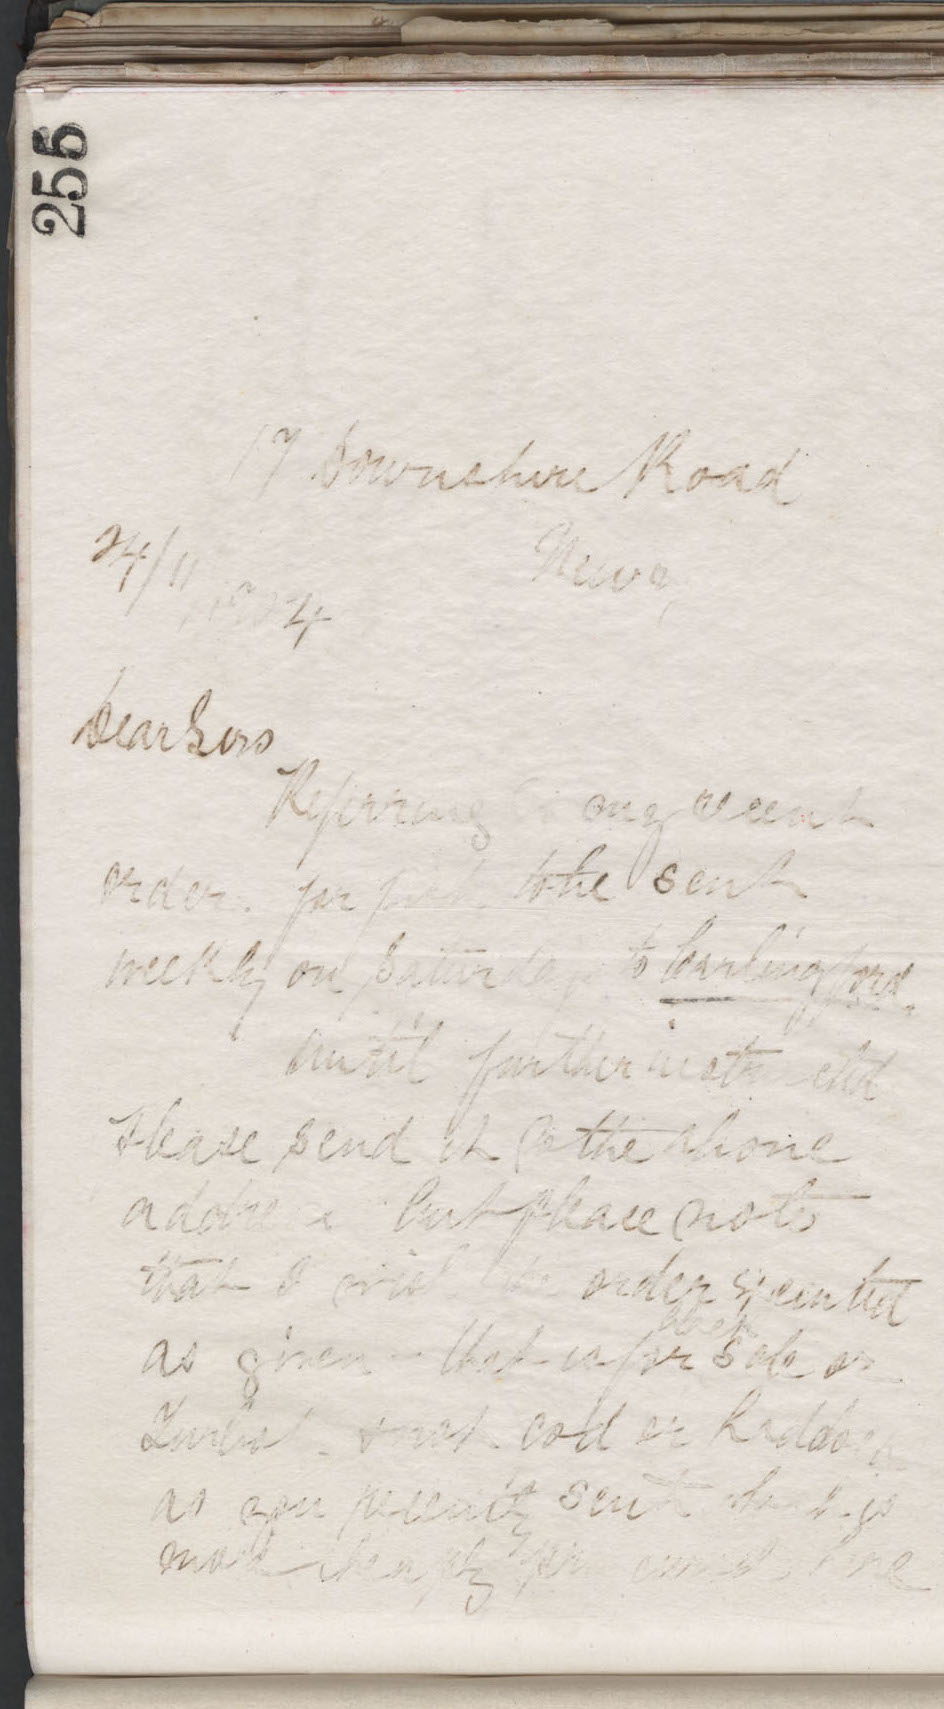 255
17 Downshire Road
Newry
24/11/1924
Dear Sirs
Referring my recent
order for fish to be sent
weekly on Saturday to Carlingford.
Until further notice
Please send it to the above
address but please note
that I wish the order executed
as given - that is for black Sole or
Turbot - not cod or haddock
as you recently sent
more cheaply